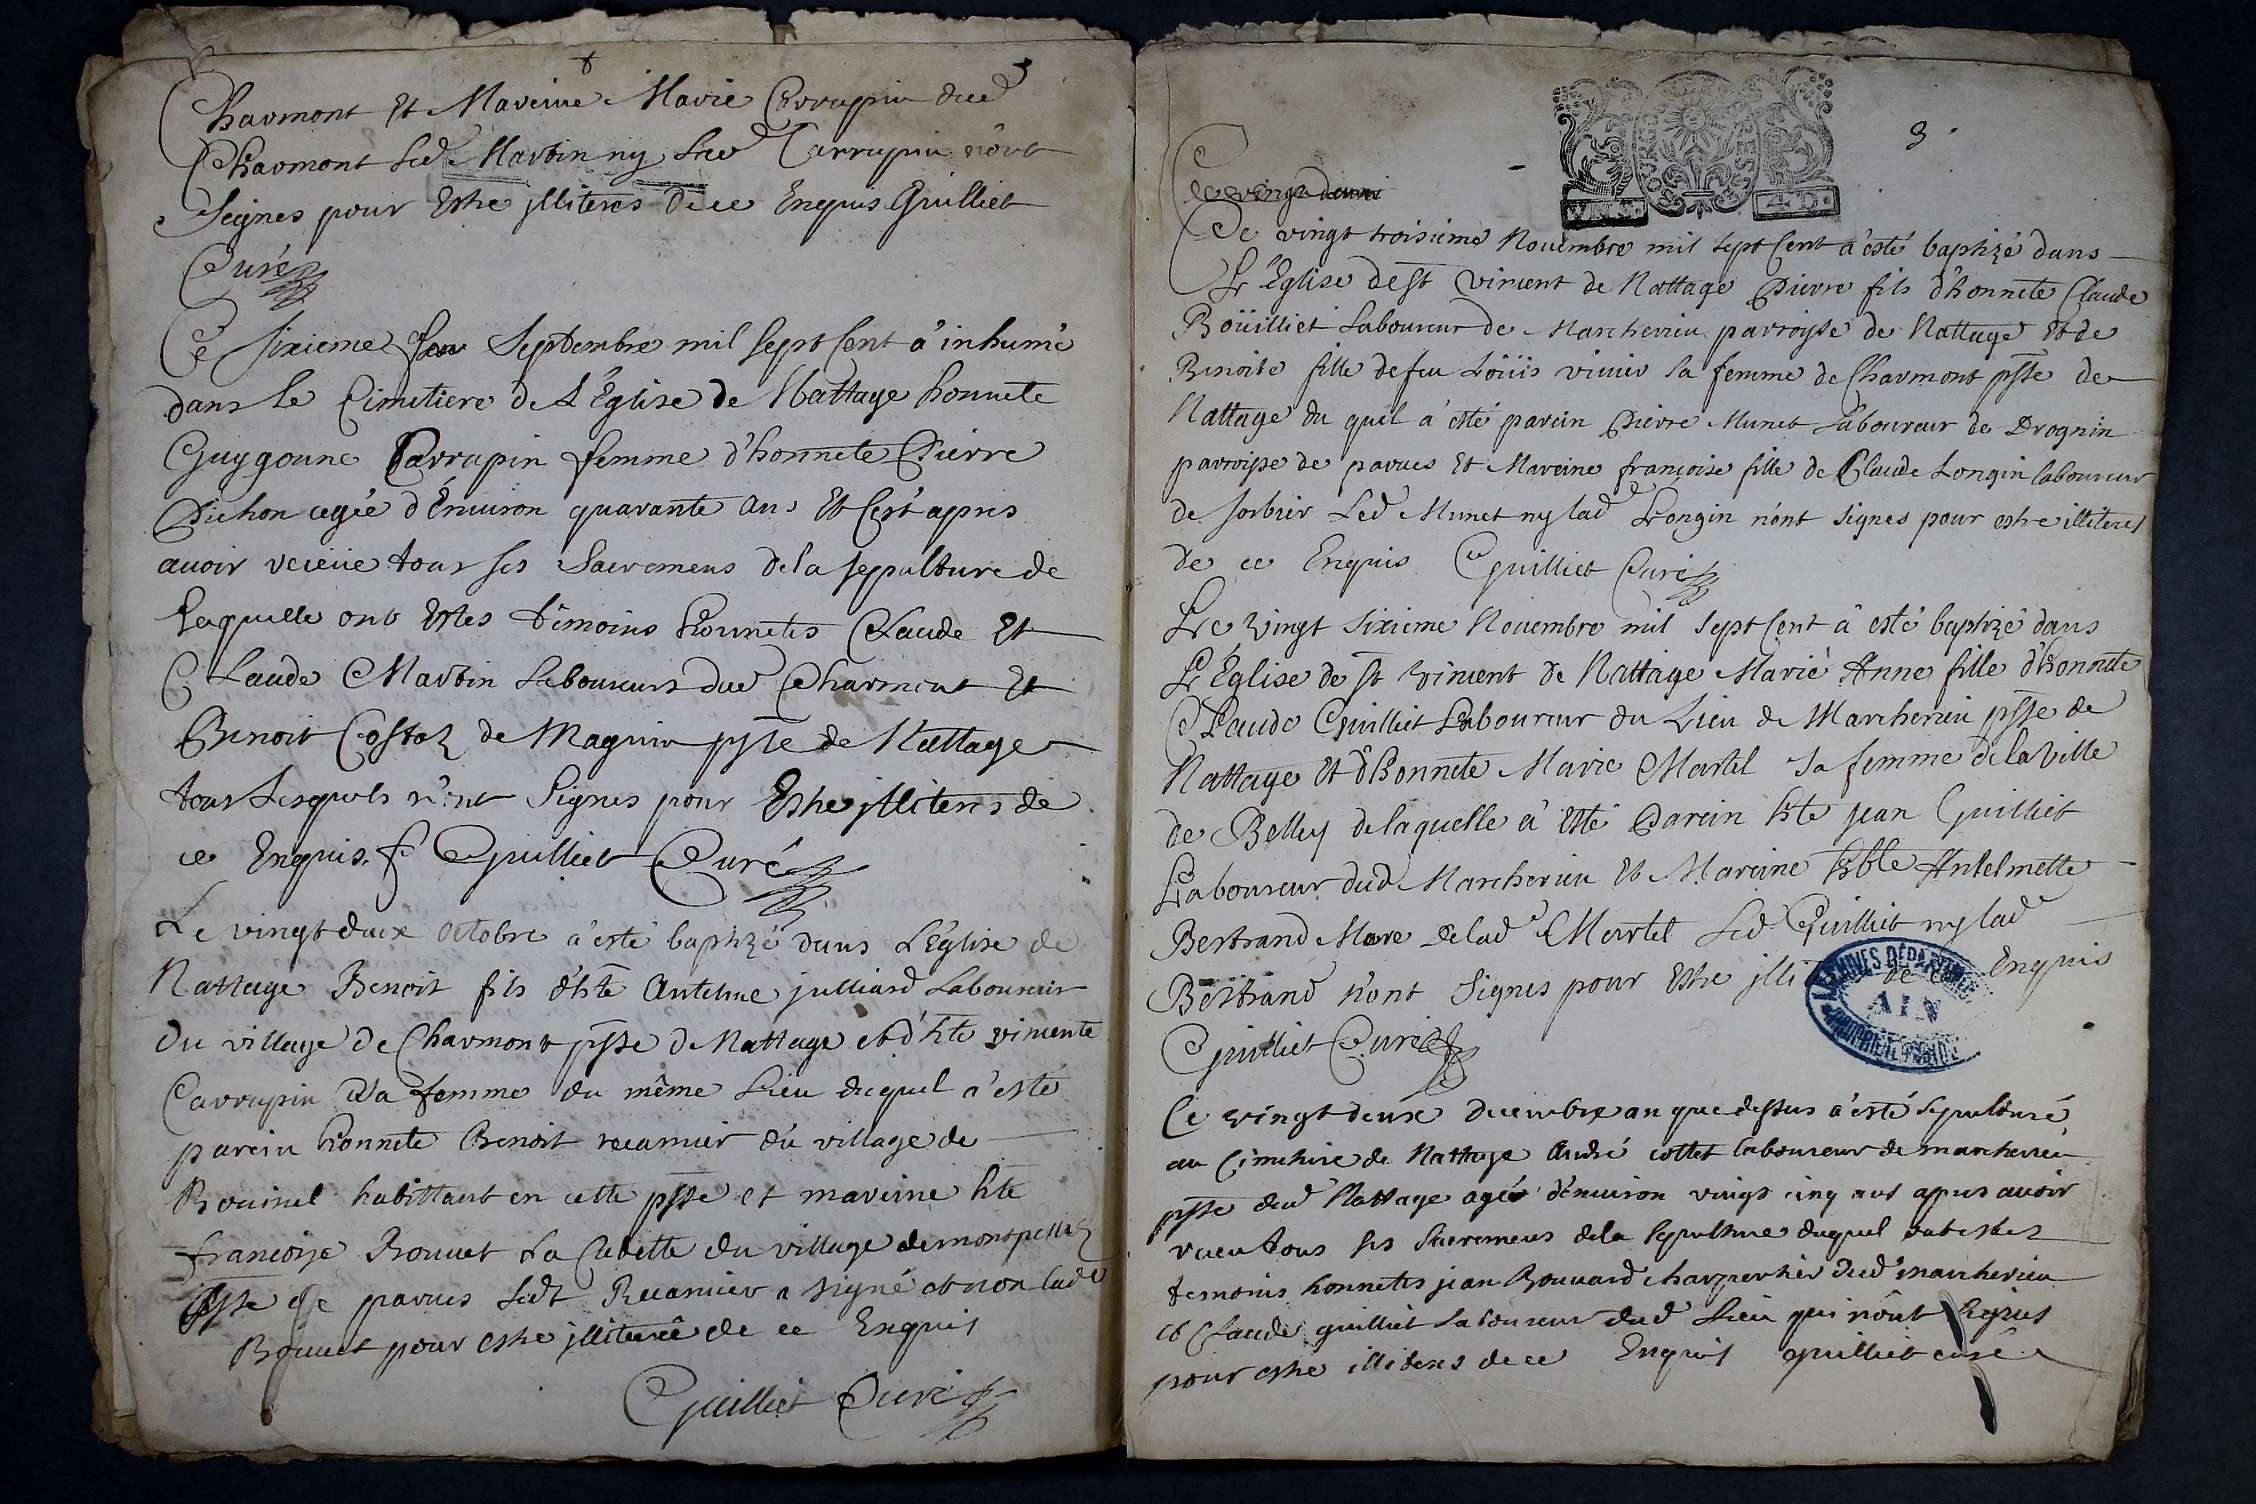 Charmont Et Mareine Marie Carrapin dud
Charmont Led Martin ny lad Carrapin n'ont
Signes pour Estre illiteres de ce Enquis Guilliet
Curé
Ce sixieme Septembre mil sept Cent a inhumé
dans le Cimetiere de L'Eglise de Nattage honnete
Guygonne Carrapin femme d'honnete Pierre
Pichon agée d'Enuiron quarante ans Et C'est apres
auoir receüe tous ses Sacremens de la sepulture de
Laquelle ont Estes temoins honnetes Claude Et
Claude Martin Laboureurs dud Charmont Et
Benoit Costaz de Magnin psse de Nattage
tous Lesquels n'ont Signes pour Estre illiteres de
ce Enquis. Guilliet Curé
Le vingt deux octobre a esté baptizé dans L'Eglise de
Nattage Benoit fils d'hte Antelme julliard Laboureur
Du village de Charmont psse de Nattage et d'hte vincente
Carrapin sa femme du même Lieu duquel a esté
parein honnete Benoit recamier du village de
habittant en cette psse et mareine hte
francoise Bouuet La Cadette du village de montpellaz
psse de parues Ledt Recamier a signé et non lad
Bouuet pour estre jlliterée de ce Enquis
Guilliet Curé
3
Le vingt
Le vingt troisieme Nouembre mil sept Cent a esté baptizé dans
L'Eglise de St Vincent de Nattage Pierre fils d'honnete Claude
Boüilliet Laboureur de Marcherieu parroisse de Nattage Et de
Benoite fille de feu Loüis viuier sa femme de Charmont psse de
Nattage du quel a esté parein Pierre Munet Laboureur de Drognin
parroisse de parues Et Mareine francoise fille de Claude Longin laboureur
de sorbier Led Munet ny lad Longin n'ont signes pour estre illiteres
de ce Enquis Guilliet Curé
Le vingt sixieme Nouembre mil sept Cent a esté baptizé dans
L'Eglise de St Vincent de Nattage Marie Anne fille d'honnete
Claude Guilliet Laboureur du Lieu de Marcherieu psse de
Nattage Et d'honnete Marie Martel sa femme de la Ville
de Belley de laquelle a Esté Parein hte jean Guilliet
Laboureur dud Marcherieu Et Mareine hble Antelmette
Bertrand Mere de lad Martel Led Guilliet ny lad
Bertrand n'ont Signes pour Estre de ce Enquis
Guilliet Curé
ARCHIVES DÉPART
AIN
Ce vingt deux decembre an que dessus a esté sepulturé
au Cimetiere de Nattage André collet laboureur de marcherieu
psse dud Nattage agé d'enuiron vingt cinq ans apres auoir
receu tous ses Sacremens de la sepulture duquel ont estes
temoins honnetes jean Bouuard charpentier dud marcherieu
et Claude guilliet Laboureur dud Lieu qui n'ont signes
pour estre illiteres de ce Enquis guilliet curé